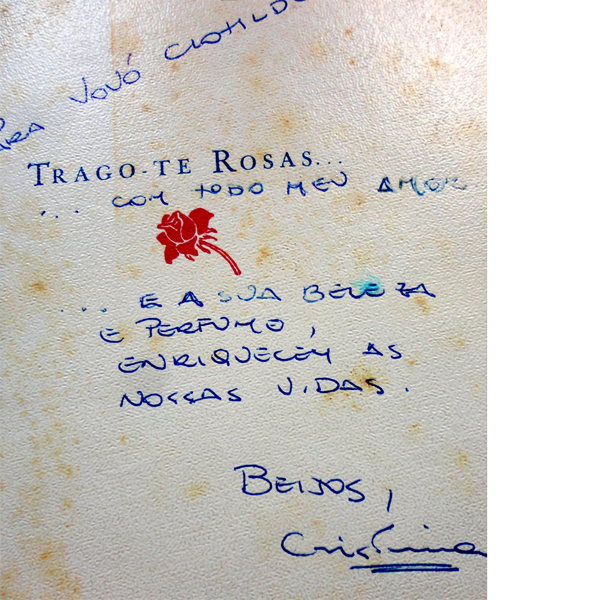 Para vovó Clotilde
TRAGO-TE ROSAS...
... com todo meu amor
... e a sua beleza
e perfume,
enriquecem as
nossas vidas.
Beijos,
Cristina